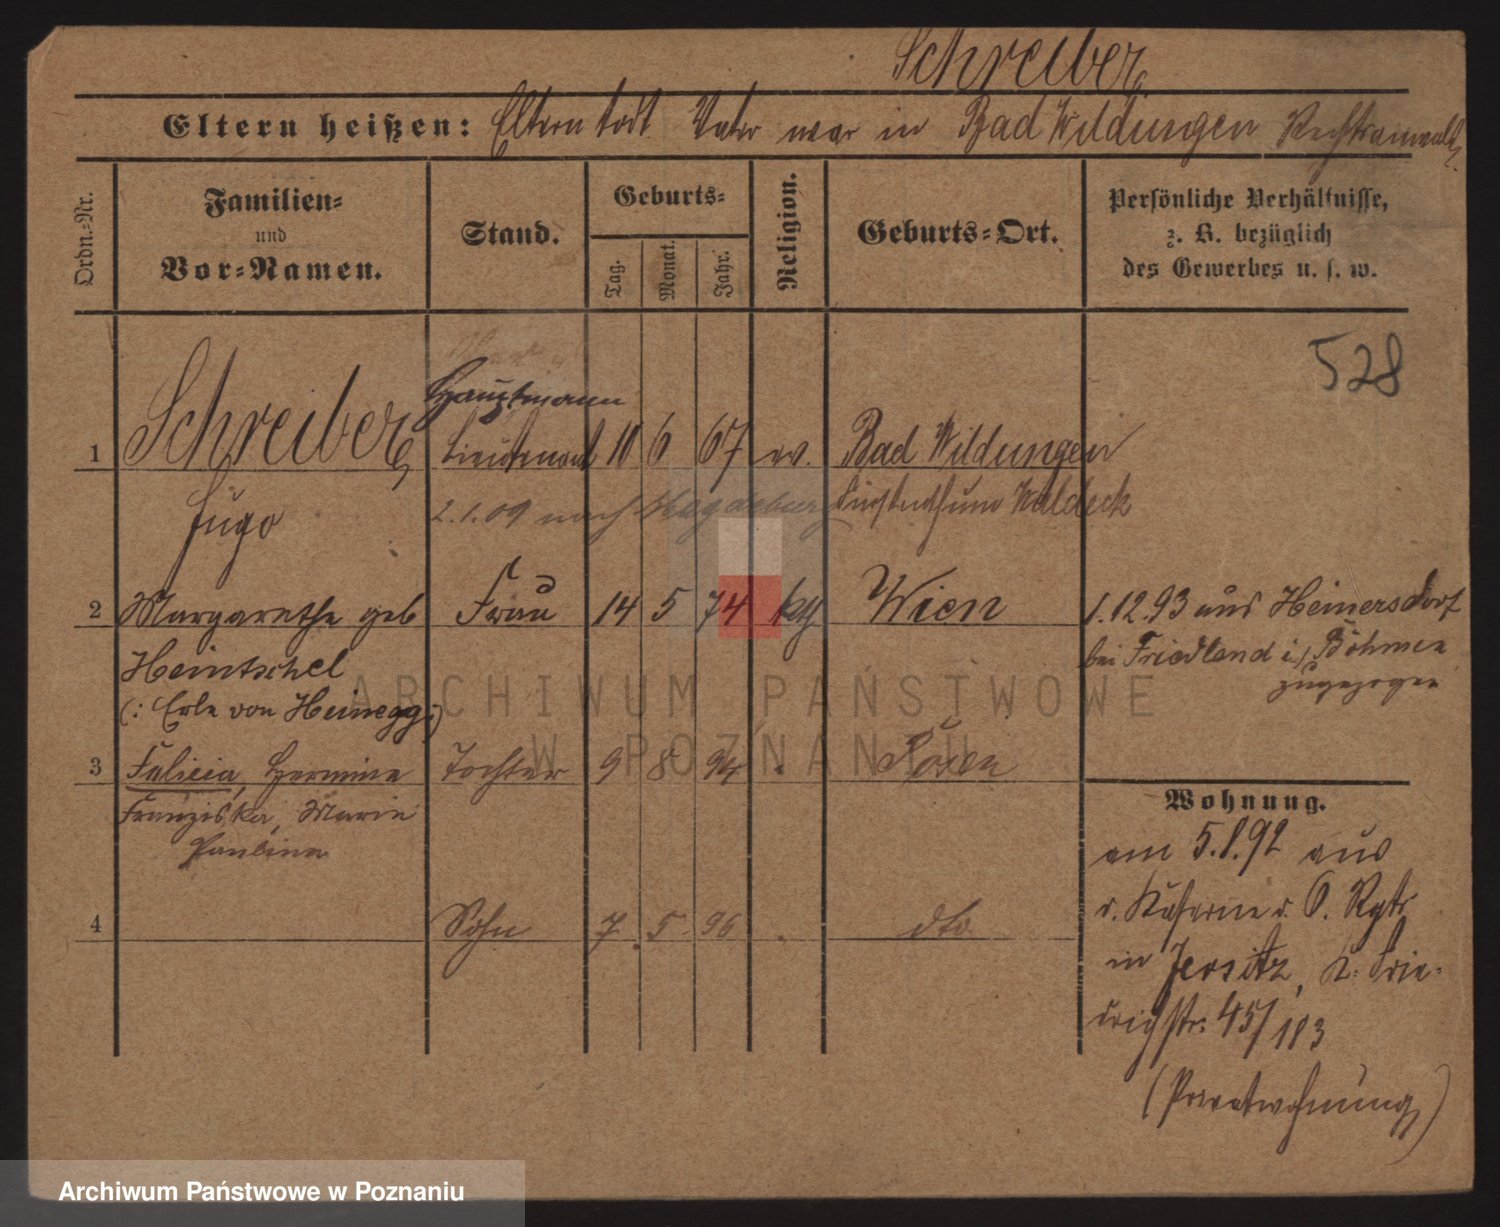 Schreiber
Eltern heißen: Eltern todt Vater war in Bad Wildungen Rechtsanwalt.
Ordn.-Nr.
Familien-
und
Vor-Namen.
Stand.
Geburts-
Tag.
Monat.
Jahr.
Religion.
Geburts-Ort.
Persönliche Verhältnisse,
z. B. bezüglich
des Gewerbes u. s. w.
528
Hauptmann
1 Schreiber, Lieutenant 10 6 67 ev. Bad Wildungen
Hugo 2.1.09 nach Magdeburg Fürstenthum Waldeck
2 Margarethe geb Frau 14 5 74 kth Wien 1.12.93 aus Heinersdorf
Heintschel bei Friedland i/ Böhmen
(: Erle von Heinegg :) zugezogen
3 Felicia, Hermine Tochter 9 8 94 Posen
Franziska, Marie
Pauline
Wohnung.
am 5.8.92 aus
d. Kaserne d. 6. Rgts
4 Sohn 7. 5. 96 dto
in Jersitz, n. Frie-
drichstr. 45/183
(Privatwohnung)
ARCHIWUM PAŃSTWOWE
W POZNANIU
Archiwum Państwowe w Poznaniu